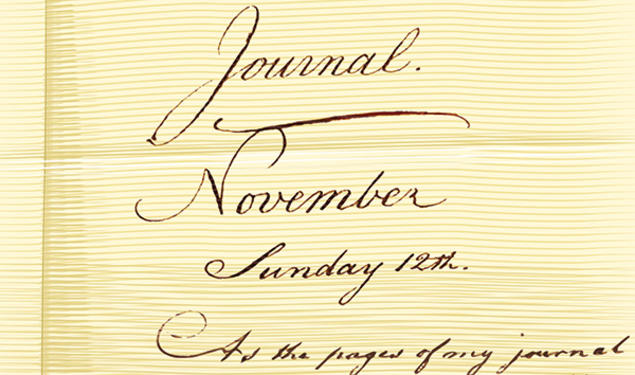 Journal.
November
Sunday 12th.
As the pages of my journal